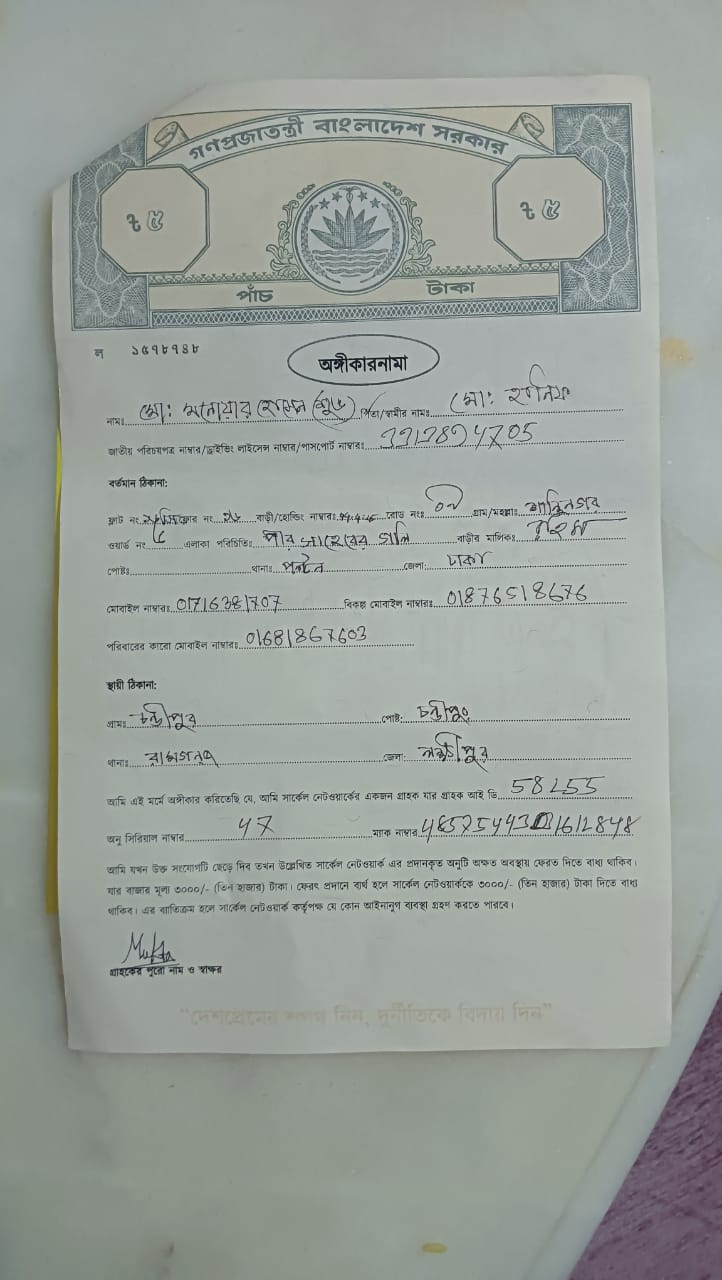 গণপ্রজাতন্ত্রী বাংলাদেশ সরকার
৳ ৫ ৳ ৫
পাঁচ টাকা
ল ১৫৭৮৭৪৮
অঙ্গীকারনামা
নামঃ মো: মনোয়ার হোসেন পিতা/স্বামীর নামঃ মো: হানিফ
জাতীয় পরিচয়পত্র নাম্বার/ড্রাইভিং লাইসেন্স নাম্বার/পাসপোর্ট নাম্বারঃ
বর্তমান ঠিকানা:
ফ্লাট নং ফ্লোর নং বাড়ী/হোল্ডিং নাম্বারঃ রোড নংঃ গ্রাম/মহল্লাঃ শান্তিনগর
ওয়ার্ড নং এলাকা পরিচিতিঃ পীর সাহেবের গলি বাড়ীর মালিকঃ
পোষ্টঃ থানাঃ পল্টন জেলা: ঢাকা
মোবাইল নাম্বারঃ 01716381707 বিকল্প মোবাইল নাম্বারঃ 01876518676
পরিবারের কারো মোবাইল নাম্বারঃ 01681867603
স্থায়ী ঠিকানা:
গ্রামঃ চন্ডীপুর পোষ্ট: চন্ডীপুর
থানাঃ রামগঞ্জ জেলা: লক্ষ্মীপুর
আমি এই মর্মে অঙ্গীকার করিতেছি যে, আমি সার্কেল নেটওয়ার্কের একজন গ্রাহক যার গ্রাহক আই ডি 58255
অনু সিরিয়াল নাম্বার 47 ম্যাক নাম্বার
আমি যখন উক্ত সংযোগটি ছেড়ে দিব তখন উল্লেখিত সার্কেল নেটওয়ার্ক এর প্রদানকৃত অনুটি অক্ষত অবস্থায় ফেরত দিতে বাধ্য থাকিব।
যার বাজার মূল্য ৩০০০/- (তিন হাজার) টাকা। ফেরৎ প্রদানে ব্যর্থ হলে সার্কেল নেটওয়ার্ককে ৩০০০/- (তিন হাজার) টাকা দিতে বাধ্য
থাকিব। এর ব্যতিক্রম হলে সার্কেল নেটওয়ার্ক কর্তৃপক্ষ যে কোন আইনানুগ ব্যবস্থা গ্রহণ করতে পারবে।
Mukta
গ্রাহকের পুরো নাম ও স্বাক্ষর
"দেশপ্রেমের শপথ নিন, দুর্নীতিকে বিদায় দিন"